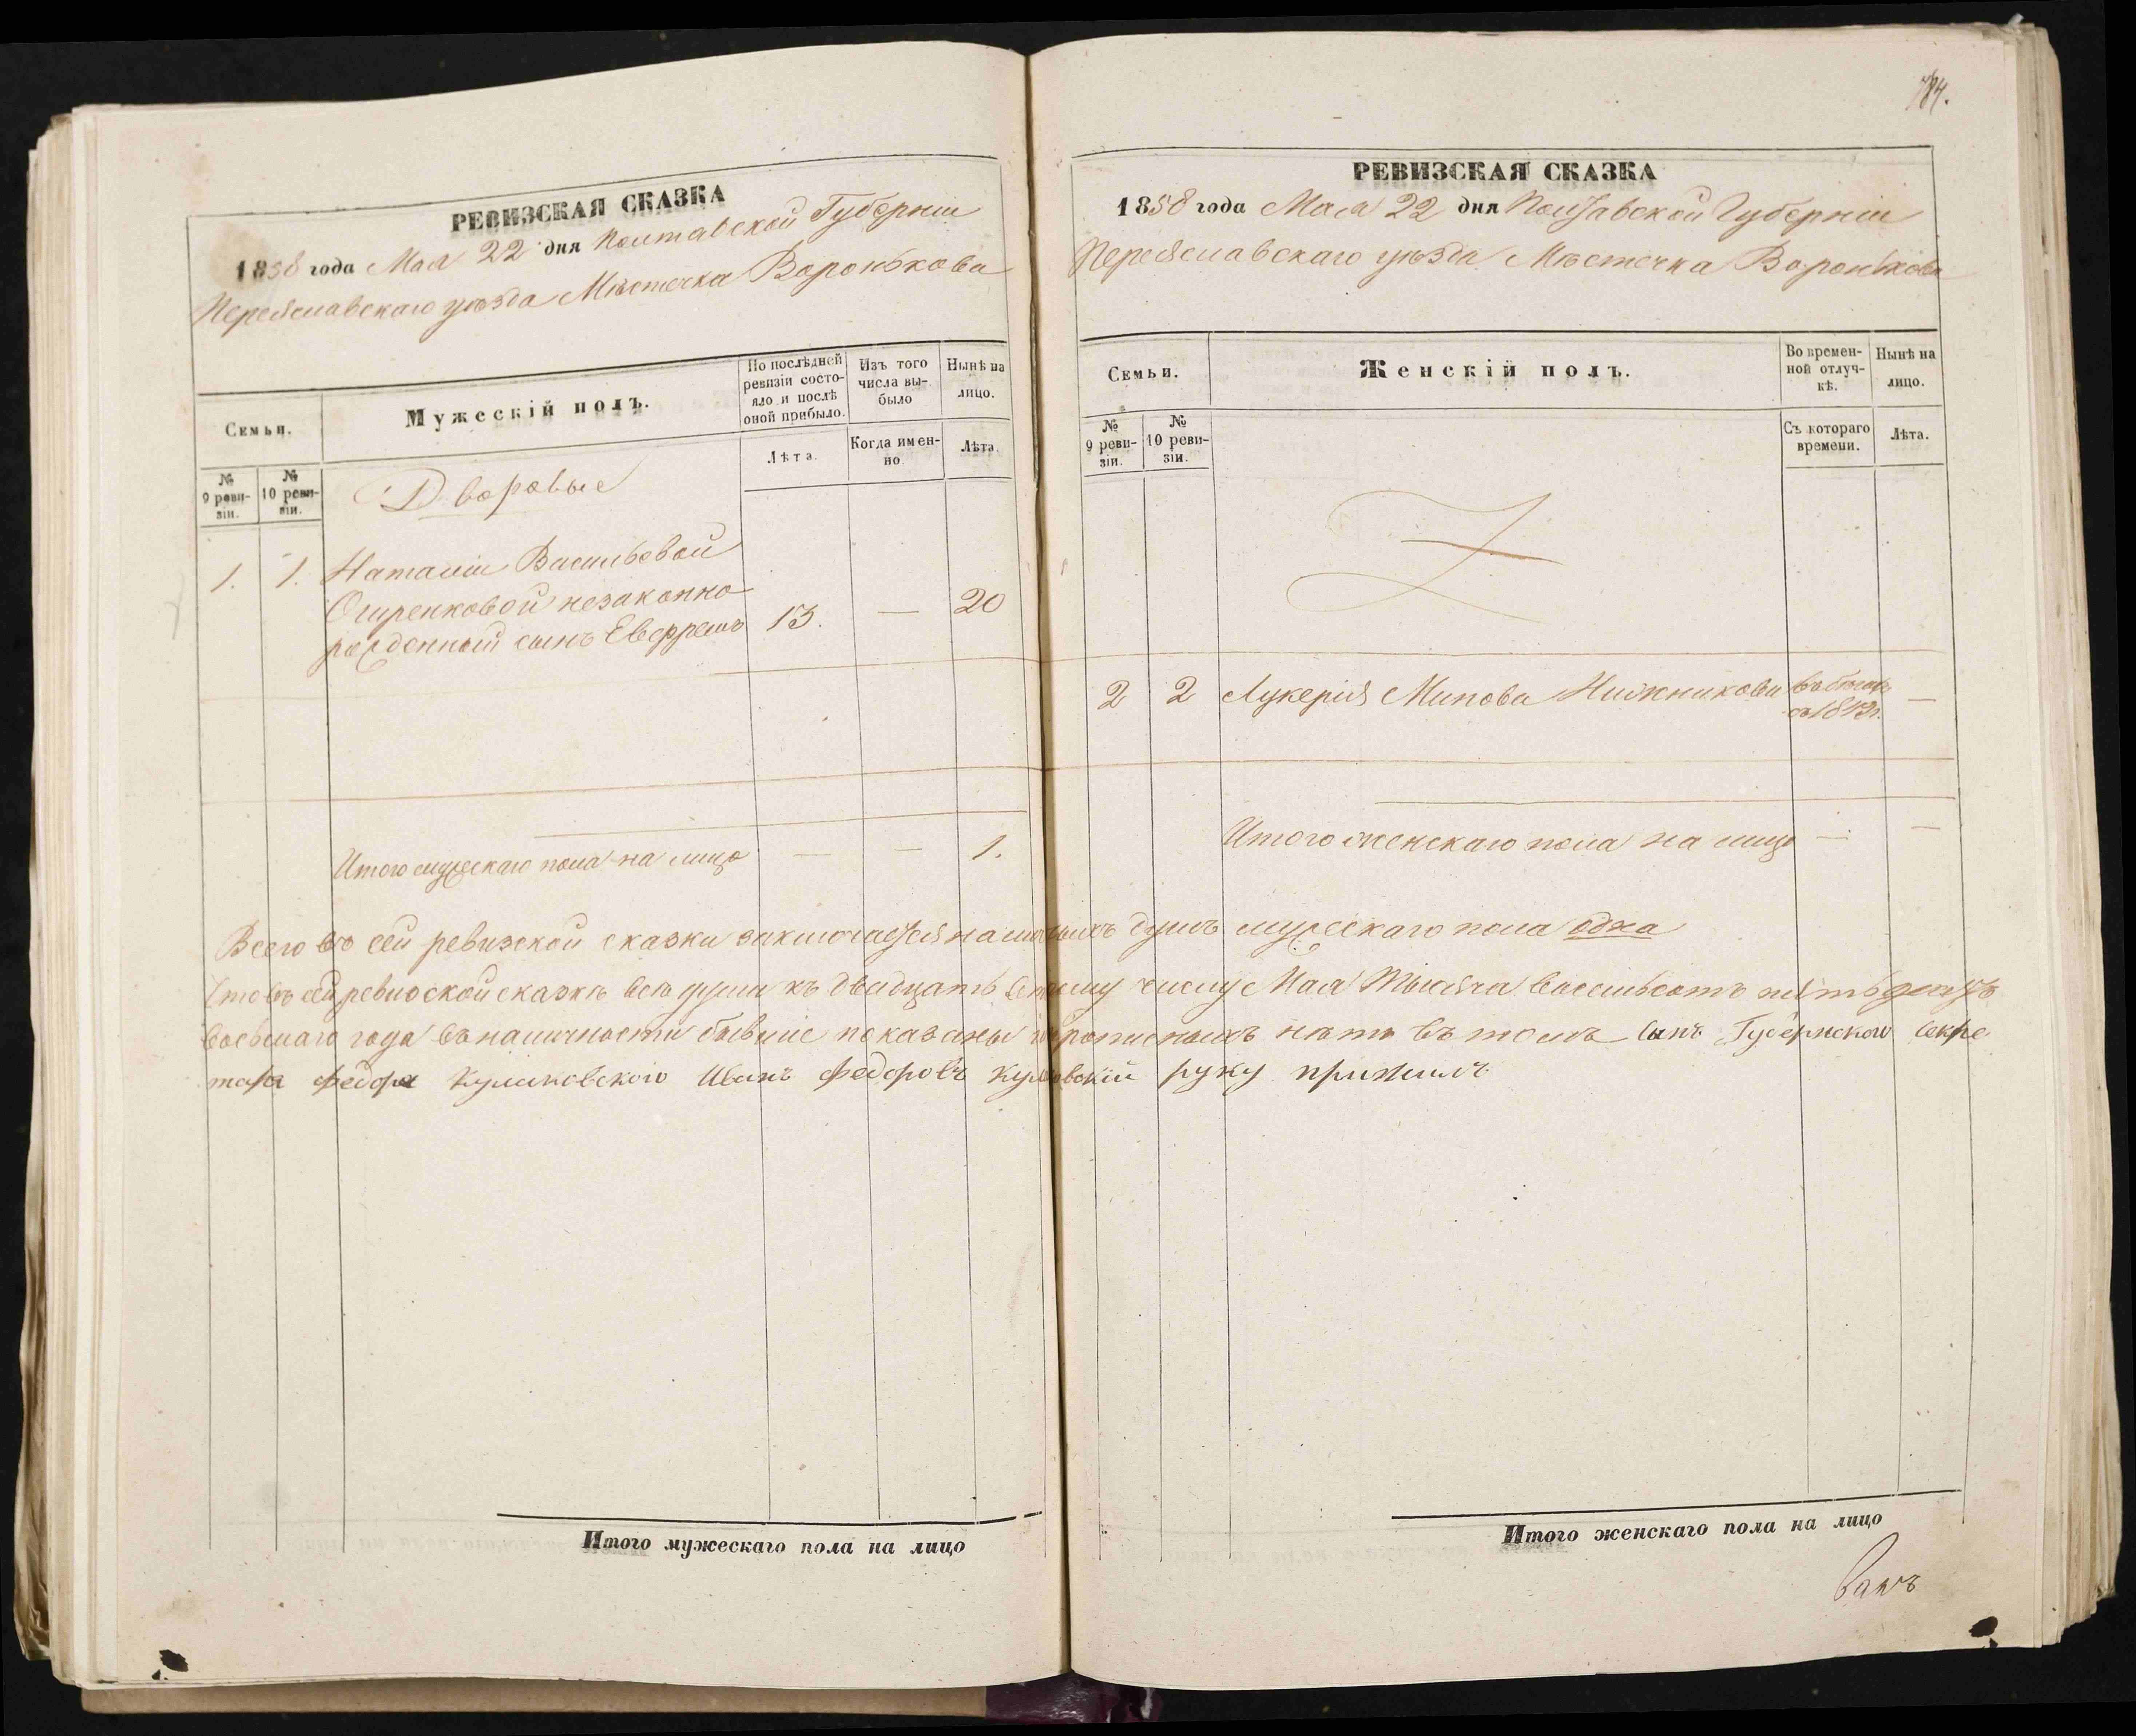 784.
РЕВИЗСКАЯ СКАЗКА
1858 года Мая 22 дня Полтавской Губерніи
Переяславскаго уѣзда Мѣстечка Воронькова
Семьи.
Мужескій полъ.
По послѣдней ревизіи состояло и послѣ оной прибыло.
Изъ того числа выбыло
Нынѣ на лицо.
№ 9 ревизіи.
№ 10 ревизіи.
Лѣта.
Когда именно.
Лѣта.
Дворовые
1. 1. Наталіи Васильевой
Оширенковой незаконно
рожденный сынъ Евфремъ 13. — 20
Итого мужескаго пола на лицо — — 1.
РЕВИЗСКАЯ СКАЗКА
1858 года Мая 22 дня Полтавской Губерніи
Переяславскаго уѣзда Мѣстечка Воронькова
Семьи.
Женскій полъ.
Во временной отлучкѣ.
Нынѣ на лицо.
№ 9 ревизіи.
№ 10 ревизіи.
Съ котораго времени.
Лѣта.
2 2 Лукерія Нижникова въ бѣгахъ —
Итого женскаго пола на лицо — —
Всего въ сей ревизской сказки заключается наличныхъ душъ мужескаго пола одна
Что въ сей ревизской сказкѣ всѣ души къ двадцать числу Мая Тысяча восемьсотъ пятьдесятъ
восьмаго года въ наличности бывшіе показаны и прописныхъ нѣтъ въ томъ Сынъ Губернского Секре
таря Федора Куликовского Иванъ Федоровъ руку приложилъ
Итого мужескаго пола на лицо
Итого женскаго пола на лицо